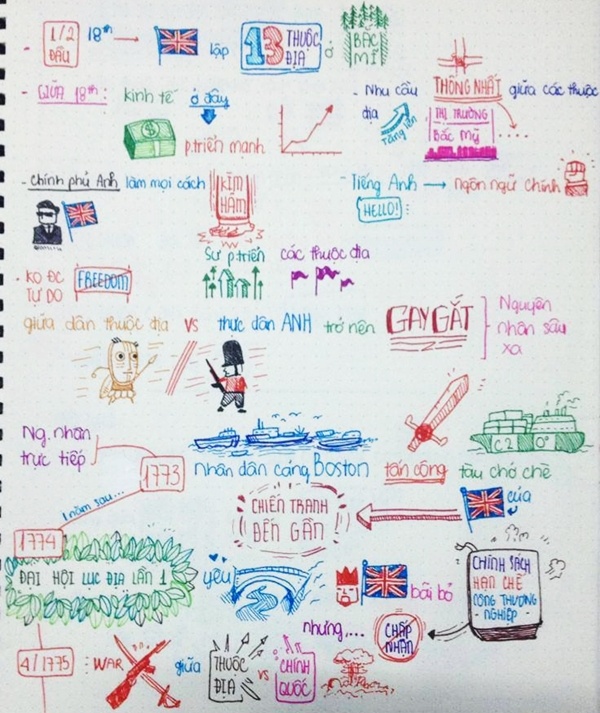 - 1/2 ĐẦU 18th → lập 13 THUỘC ĐỊA ở BẮC MĨ
- GIỮA 18th: kinh tế ở đây p.triển mạnh
- Nhu cầu THỐNG NHẤT giữa các thuộc
địa tăng lên THỊ TRƯỜNG Bắc Mỹ ....
- Chính phủ Anh làm mọi cách KÌM HÃM
- Tiếng Anh → ngôn ngữ chính
HELLO!
Sự p.triển các thuộc địa
- KO ĐC TỰ DO FREEDOM
giữa dân thuộc địa VS thực dân ANH trở nên GAY GẮT
Nguyên nhân sâu xa
Ng. nhân trực tiếp
1773 nhân dân cảng Boston tấn công tàu chở chè
của
1 năm sau...
CHIẾN TRANH ĐẾN GẦN!
1774
ĐẠI HỘI LỤC ĐỊA LẦN 1 yêu bãi bỏ
CHÍNH SÁCH
HẠN CHẾ
CÔNG THƯƠNG
- NGHIỆP -
nhưng.... CHẤP NHẬN
4/1775 : WAR giữa THUỘC ĐỊA VS CHÍNH QUỐC